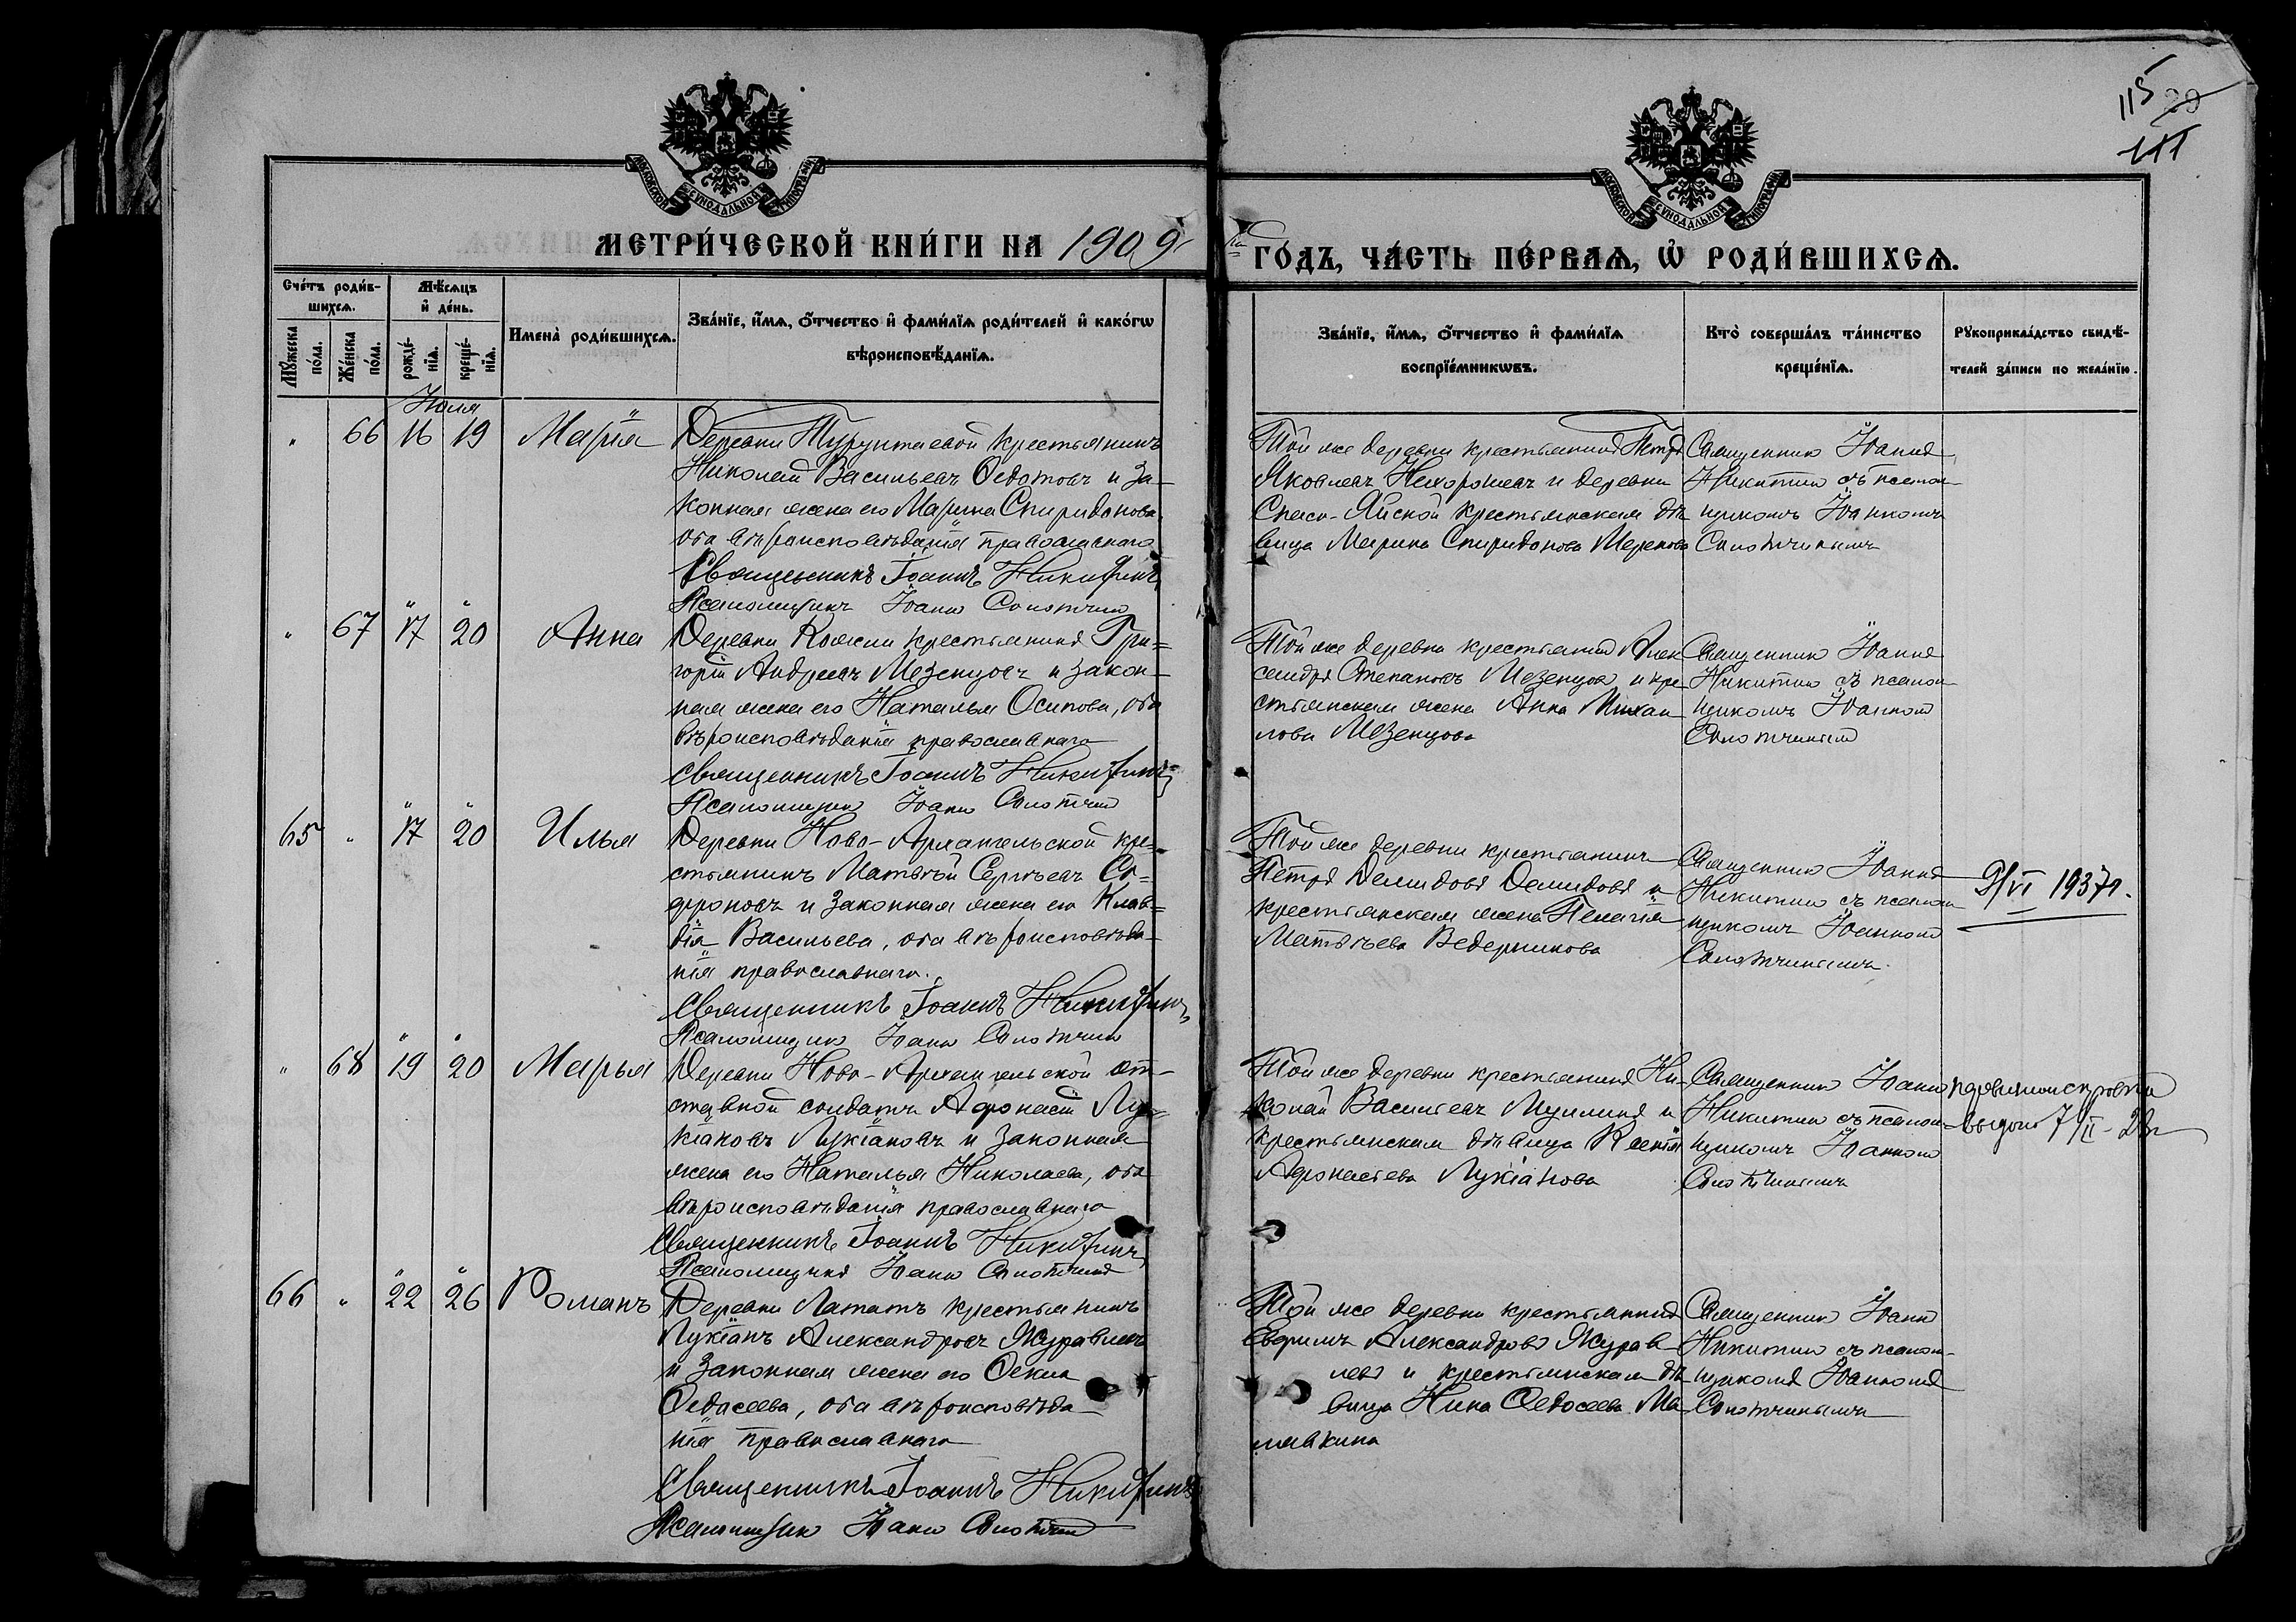 115 29
111
МОСКОВСКОЙ СѴНОДАЛЬНОЙ ТИПОГРАФІИ
МОСКОВСКОЙ СѴНОДАЛЬНОЙ ТИПОГРАФІИ
МЕТРИ́ЧЕСКОЙ КНИ́ГИ НА 1909 ГО́ДЪ, ЧА́СТЬ ПЕ́РВАѦ, Ѡ҆ РОДИ́ВШИХСѦ.
Сче́тъ роди́в-
шихсѧ.
Мѣ́сѧцъ
и҆ де́нь.
Мꙋ́жеска
по́ла.
Же́нска
по́ла.
рожде́-
нїѧ.
креще́-
нїѧ.
Имена̀ роди́вшихсѧ.
Зва́нїе, и҆́мѧ, ѻ҆́тчество и҆ фами́лїѧ роди́телей и҆ како́гѡ
вѣроисповѣ́данїѧ.
Зва́нїе, и҆́мѧ, ѻ҆́тчество и҆ фами́лїѧ
воспрїе́мникѡвъ.
Кто̀ соверша́лъ та́инство
креще́нїѧ.
Рꙋкоприкла́дство свидѣ́-
телей за́писи по жела́нїю.
Іюля
" 66 16 19 Марія
Деревни Турунтаевой крестьянинъ
Николай Васильевъ Ѳедотовъ и за-
конная жена его Марина Спиридонова
оба вѣроисповѣданія православнаго
Священникъ Іоаннъ Никитинъ
Псаломщикъ Іоаннъ Солотчинъ
Той же деревни крестьянинъ Петръ
Яковлевъ Нехорошевъ и деревни
Спасо-Яйской крестьянская дѣ-
вица Марина Спиридонова
Священникъ Іоаннъ
Никитинъ съ псалом-
щикомъ Іоанномъ
Солотчинымъ
" 67 17 20 Анна
Деревни крестьянинъ Гри-
горій Андреевъ Мезенцовъ и закон-
ная жена его Наталья Осипова, оба
вѣроисповѣданія православнаго
Священникъ Іоаннъ Никитинъ
Псаломщикъ Іоаннъ Солотчинъ
Той же деревни крестьянинъ Алек
сандръ Степановъ Мезенцовъ и кре
стьянская жена Анна Михаи
лова Мезенцова
Священникъ Іоаннъ
Никитинъ съ псалом
щикомъ Іоанномъ
Солотчинымъ
65 " 17 20 Илья
Деревни Ново-Архангельской кре-
стьянинъ Матвѣй Сергѣевъ Со-
фроновъ и законная жена его Клав-
дія Васильева, оба вѣроисповѣда-
нія православнаго.
Священникъ Іоаннъ Никитинъ
Псаломщикъ Іоаннъ Солотчинъ
Той же деревни крестьянинъ
Петръ Демидовъ Демидовъ и
крестьянская жена Пелагія
Матвѣева Ведерникова
Священникъ Іоаннъ
Никитинъ съ псалом
щикомъ Іоанномъ
Солотчинымъ
9/VI 1937г.
" 68 19 20 Марья
Деревни Ново-Архангельской от-
ставной солдатъ Афонасій Лу-
кіановъ Лукіановъ и законная
жена его Наталья Николаева, оба
вѣроисповѣданія православнаго
Священникъ Іоаннъ Никитинъ
Псаломщикъ Іоаннъ Солотчинъ
Той же деревни крестьянинъ Ни-
колай Васильевъ и
крестьянская дѣвица Ксенія
Афонасьева Лукіанова
Священникъ Іоаннъ
Никитинъ съ псалом-
щикомъ Іоанномъ
Солотчинымъ
66 " 22 26 Романъ
Деревни Лататъ крестьянинъ
Лукіанъ Александровъ Журавлевъ
и законная жена его Ѳекла
Ѳедосеева, оба вѣроисповѣда-
нія православнаго
Священникъ Іоаннъ Никитинъ
Псаломщикъ Іоаннъ Солотчинъ
Той же деревни крестьянинъ
Евфимъ Александровъ Журав
левъ и крестьянская дѣ-
вица Нина Ѳедосеева Ма
лавкина
Священникъ Іоаннъ
Никитинъ съ псалом-
щикомъ Іоанномъ
Солотчинымъ